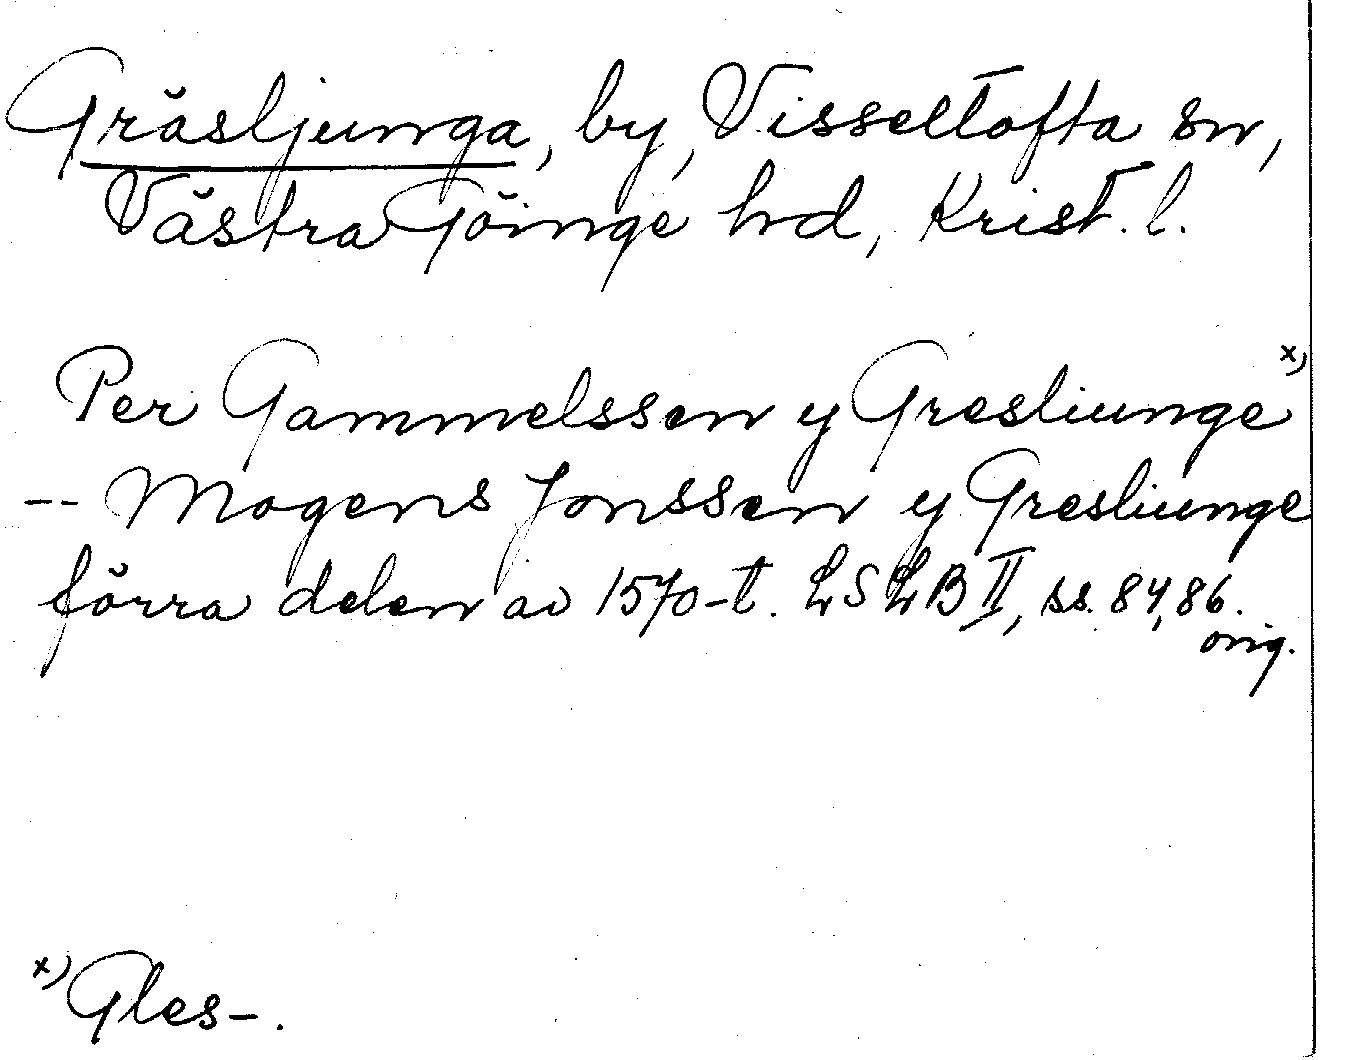 Gräsljunga, by, Visseltofta sn,
Västra Göinge hd, Krist. l.
Per Gammelssen y Gresliunge x)
-- Mogens Jonssen y Gresliunge
förra delen av 1570-t. LSLB II, ss. 84, 86.
orig.
x) Gles-.